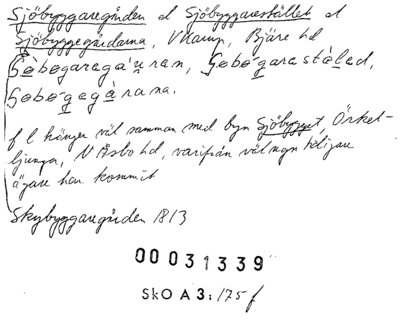 Sjöbyggaregården el Sjöbyggarestället el
Sjöbyggegårdarna, V Karup, Bjäre hd
Şöbøgaragaʾu̇ran, Şøbøgarastålєd,
Şøbøgegàrana.
f l hänger väl samman med byn Sjöbygget, Örkel-
ljunga, N Åsbo hd, varifrån väl ngn tidigare
ägare har kommit
Skybyggaregården 1813
00031339
SkO A 3: 175 f